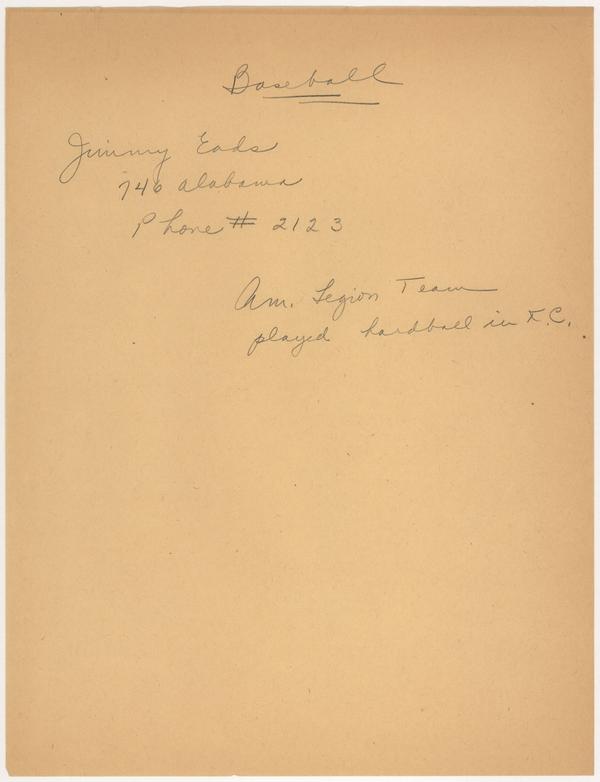 Baseball
Jimmy Eads
746 Alabama
Phone # 2123
Am. Legion Team
played hardball in K.C.